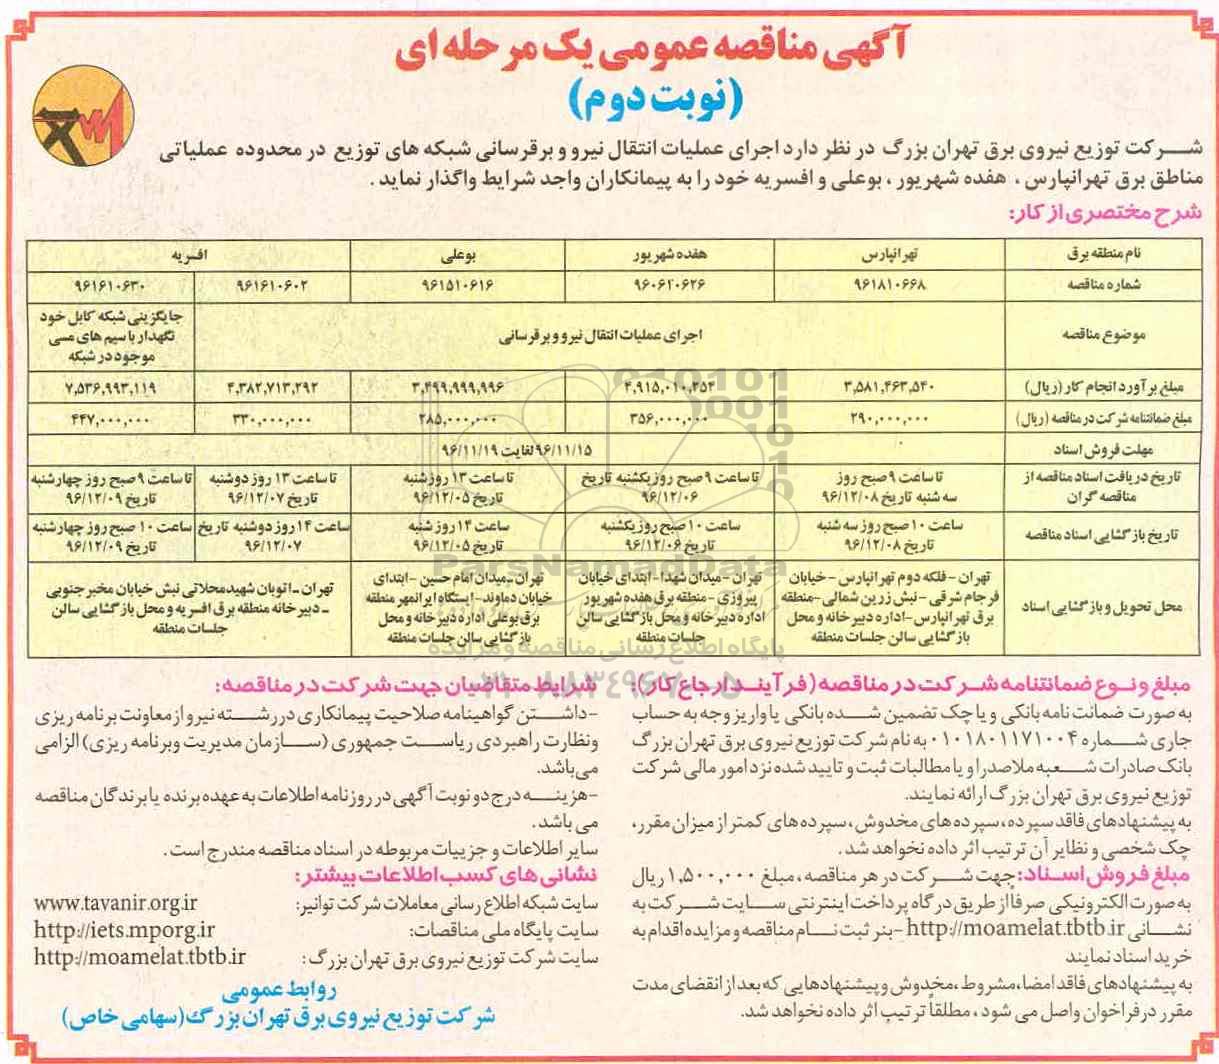 آگهی مناقصه عمومی یک مرحله ای
(نوبت دوم)
شرکت توزیع نیروی برق تهران بزرگ در نظر دارد اجرای عملیات انتقال نیرو و برقرسانی شبکه های توزیع در محدوده عملیاتی
مناطق برق تهرانپارس ، هفده شهریور ، بوعلی و افسریه خود را به پیمانکاران واجد شرایط واگذار نماید .
شرح مختصری از کار:
نام منطقه برق تهرانپارس هفده شهریور بوعلی افسریه
شماره مناقصه ۹۶۱۸۱۰۶۶۸ ۹۶۰۶۲۰۶۲۶ ۹۶۱۵۱۰۶۱۶ ۹۶۱۶۱۰۶۰۲ ۹۶۱۶۱۰۶۳۰
موضوع مناقصه اجرای عملیات انتقال نیرو و برقرسانی
جایگزینی شبکه کابل خود
نگهدار با سیم های مسی
موجود در شبکه
مبلغ برآورد انجام کار (ریال) ۳,۵۸۱,۴۶۳,۵۴۰ ۴,۹۱۵,۰۱۰,۲۵۴ ۳,۴۹۹,۹۹۹,۹۹۶ ۴,۳۸۲,۷۱۳,۲۹۲ ۷,۵۳۶,۹۹۳,۱۱۹
مبلغ ضمانتنامه شرکت در مناقصه (ریال) ۲۹۰,۰۰۰,۰۰۰ ۳۵۶,۰۰۰,۰۰۰ ۲۸۵,۰۰۰,۰۰۰ ۳۳۰,۰۰۰,۰۰۰ ۴۴۷,۰۰۰,۰۰۰
مهلت فروش اسناد ۹۶/۱۱/۱۵ لغایت ۹۶/۱۱/۱۹
تاریخ دریافت اسناد مناقصه از
مناقصه گران
تا ساعت ۹ صبح روز
سه شنبه تاریخ ۹۶/۱۲/۰۸
تا ساعت ۹ صبح روز یکشنبه تاریخ
۹۶/۱۲/۰۶
تا ساعت ۱۳ روز شنبه
تاریخ ۹۶/۱۲/۰۵
تا ساعت ۱۳ روز دوشنبه
تاریخ ۹۶/۱۲/۰۷
تا ساعت ۹ صبح روز چهارشنبه
تاریخ ۹۶/۱۲/۰۹
تاریخ بازگشایی اسناد مناقصه
ساعت ۱۰ صبح روز سه شنبه
تاریخ ۹۶/۱۲/۰۸
ساعت ۱۰ صبح روز یکشنبه
تاریخ ۹۶/۱۲/۰۶
ساعت ۱۴ روز شنبه
تاریخ ۹۶/۱۲/۰۵
ساعت ۱۴ روز دوشنبه تاریخ
۹۶/۱۲/۰۷
ساعت ۱۰ صبح روز چهارشنبه
تاریخ ۹۶/۱۲/۰۹
محل تحویل و بازگشایی اسناد
تهران - فلکه دوم تهرانپارس - خیابان
فرجام شرقی - نبش زرین شمالی - منطقه
برق تهرانپارس - اداره دبیرخانه و محل
بازگشایی سالن جلسات منطقه
تهران - میدان شهدا - ابتدای خیابان
پیروزی - منطقه برق هفده شهریور
اداره دبیرخانه و محل بازگشایی سالن
جلسات منطقه
تهران - میدان امام حسین - ابتدای
خیابان دماوند - ایستگاه ایرانمهر منطقه
برق بوعلی اداره دبیرخانه و محل
بازگشایی سالن جلسات منطقه
تهران - اتوبان شهید محلاتی نبش خیابان مخبر جنوبی
- دبیرخانه منطقه برق افسریه و محل بازگشایی سالن
جلسات منطقه
ParsNamadData
پایگاه اطلاع رسانی مناقصه و مزایده
مبلغ و نوع ضمانتنامه شرکت در مناقصه (فرآیند ارجاع کار):
به صورت ضمانت نامه بانکی و یا چک تضمین شده بانکی یا واریز وجه به حساب
جاری شماره ۰۱۰۱۸۰۱۱۷۱۰۰۴ به نام شرکت توزیع نیروی برق تهران بزرگ
بانک صادرات شعبه ملاصدرا و یا مطالبات ثبت و تایید شده نزد امور مالی شرکت
توزیع نیروی برق تهران بزرگ ارائه نمایند.
به پیشنهادهای فاقد سپرده، سپرده های مخدوش، سپرده های کمتر از میزان مقرر،
چک شخصی و نظایر آن ترتیب اثر داده نخواهد شد .
مبلغ فروش اسناد: جهت شرکت در هر مناقصه ، مبلغ ۱,۵۰۰,۰۰۰ ریال
به صورت الکترونیکی صرفا از طریق درگاه پرداخت اینترنتی سایت شرکت به
نشانی http://moamelat.tbtb.ir - بنر ثبت نام مناقصه و مزایده اقدام به
خرید اسناد نمایند
به پیشنهادهای فاقد امضا، مشروط ، مخدوش و پیشنهادهایی که بعد از انقضای مدت
مقرر در فراخوان واصل می شود ، مطلقاً ترتیب اثر داده نخواهد شد.
شرایط متقاضیان جهت شرکت در مناقصه:
- داشتن گواهینامه صلاحیت پیمانکاری در رشته نیرو از معاونت برنامه ریزی
ونظارت راهبردی ریاست جمهوری (سازمان مدیریت وبرنامه ریزی) الزامی
می باشد.
- هزینه درج دو نوبت آگهی در روزنامه اطلاعات به عهده برنده یا برندگان مناقصه
می باشد .
سایر اطلاعات و جزییات مربوطه در اسناد مناقصه مندرج است .
نشانی های کسب اطلاعات بیشتر:
سایت شبکه اطلاع رسانی معاملات شرکت توانیر: www.tavanir.org.ir
سایت پایگاه ملی مناقصات: http://iets.mporg.ir
سایت شرکت توزیع نیروی برق تهران بزرگ : http://moamelat.tbtb.ir
روابط عمومی
شرکت توزیع نیروی برق تهران بزرگ (سهامی خاص)